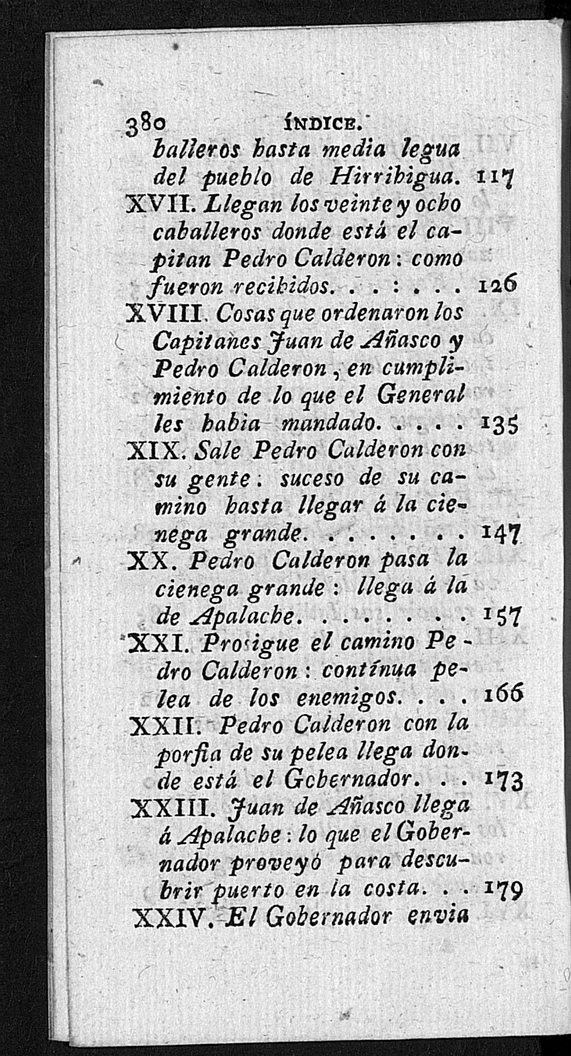 380 ÍNDICE.
balleros hasta media legua
del pueblo de Hirrihigua. 117
XVII. Llegan los veinte y ocho
caballeros donde está el ca-
pitan Pedro Calderon : como
fueron recibidos. . . : . . . 126
XVIII. Cosas que ordenaron los
Capitanes Juan de Añasco y
Pedro Calderon, en cumpli-
miento de lo que el General
les habia mandado. . . . . 135
XIX. Sale Pedro Calderon con
su gente : suceso de su ca-
mino hasta llegar á la cie-
nega grande. . . . . . . . 147
XX. Pedro Calderon pasa la
cienega grande : llega á la
de Apalache. . . . . . . . . 157
XXI. Prosigue el camino Pe-
dro Calderon : contínua pe-
lea de los enemigos. . . . 166
XXII. Pedro Calderon con la
porfia de su pelea llega don-
de está el Gobernador. . . 173
XXIII. Juan de Añasco llega
á Apalache : lo que el Gober-
nador proveyó para descu-
brir puerto en la costa. . . 179
XXIV. El Gobernador envia